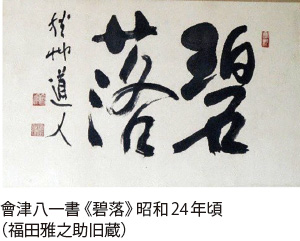 碧落
秋艸道人
會津八一書《碧落》昭和24年頃
（福田雅之助旧蔵）